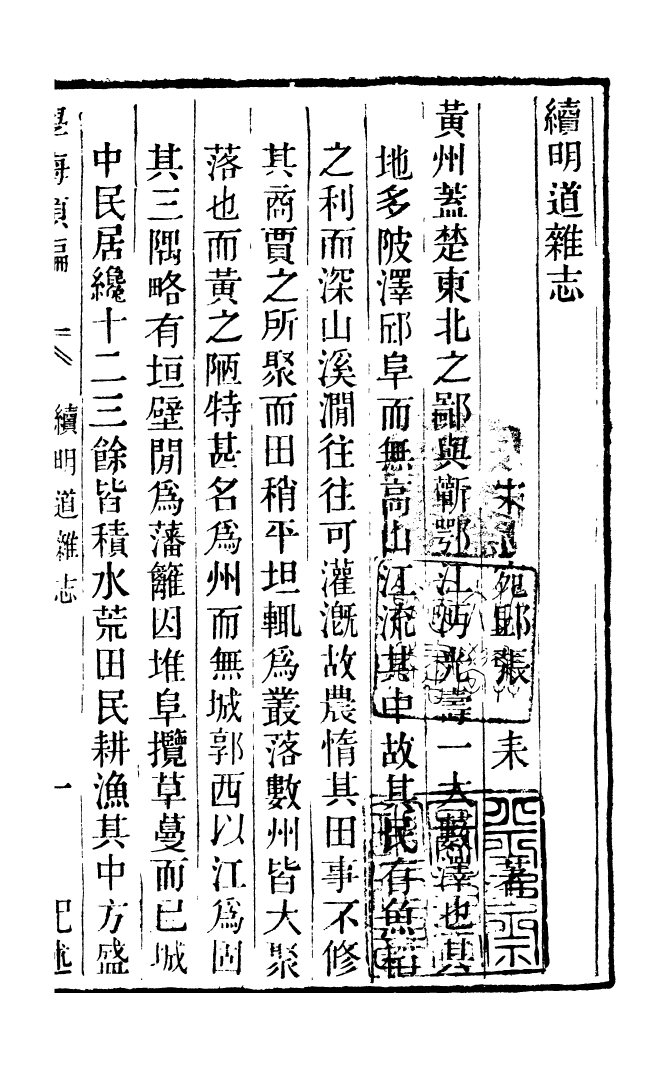 續明道雜志
宋 宛邱張 耒 著
黃州蓋楚東北之鄙與蘄鄂江沔光壽一大藪澤也其
地多陂澤邱阜而無高山江流其中故其民有魚稻
之利而深山溪澗往往可灌溉故農惰其田事不修
其商賈之所聚而田稍平坦輒爲叢落數州皆大聚
落也而黃之陋特甚名爲州而無城郭西以江爲固
其三隅略有垣壁閒爲藩籬因堆阜攬草蔓而已城
中民居纔十二三餘皆積水荒田民耕漁其中方盛
學海類編 續明道雜志 一 記述